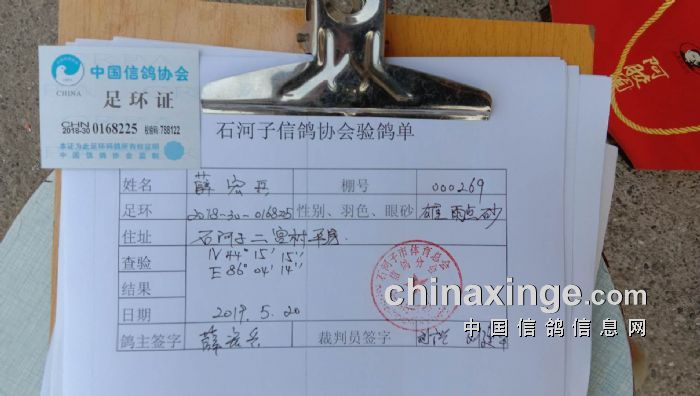 中国信鸽协会
CHINA
足环证
CHN
2018-30 0168225 校验码 788122
本证为此足环鸽所有权证明
中国信鸽协会监制
石河子信鸽协会验鸽单
姓名 薛宏兵 棚号 000269
足环 2018-30-0168225 性别、羽色、眼砂 雄 雨点 砂
住址 石河子二宫村平房.
查验 N 44° 15' 15''
E 86° 04' 14''
结果
日期 2019. 5. 20
鸽主签字 薛宏兵 裁判员签字
石河子市体育总会
信鸽分会
chinaxinge.com
中国信鸽信息网